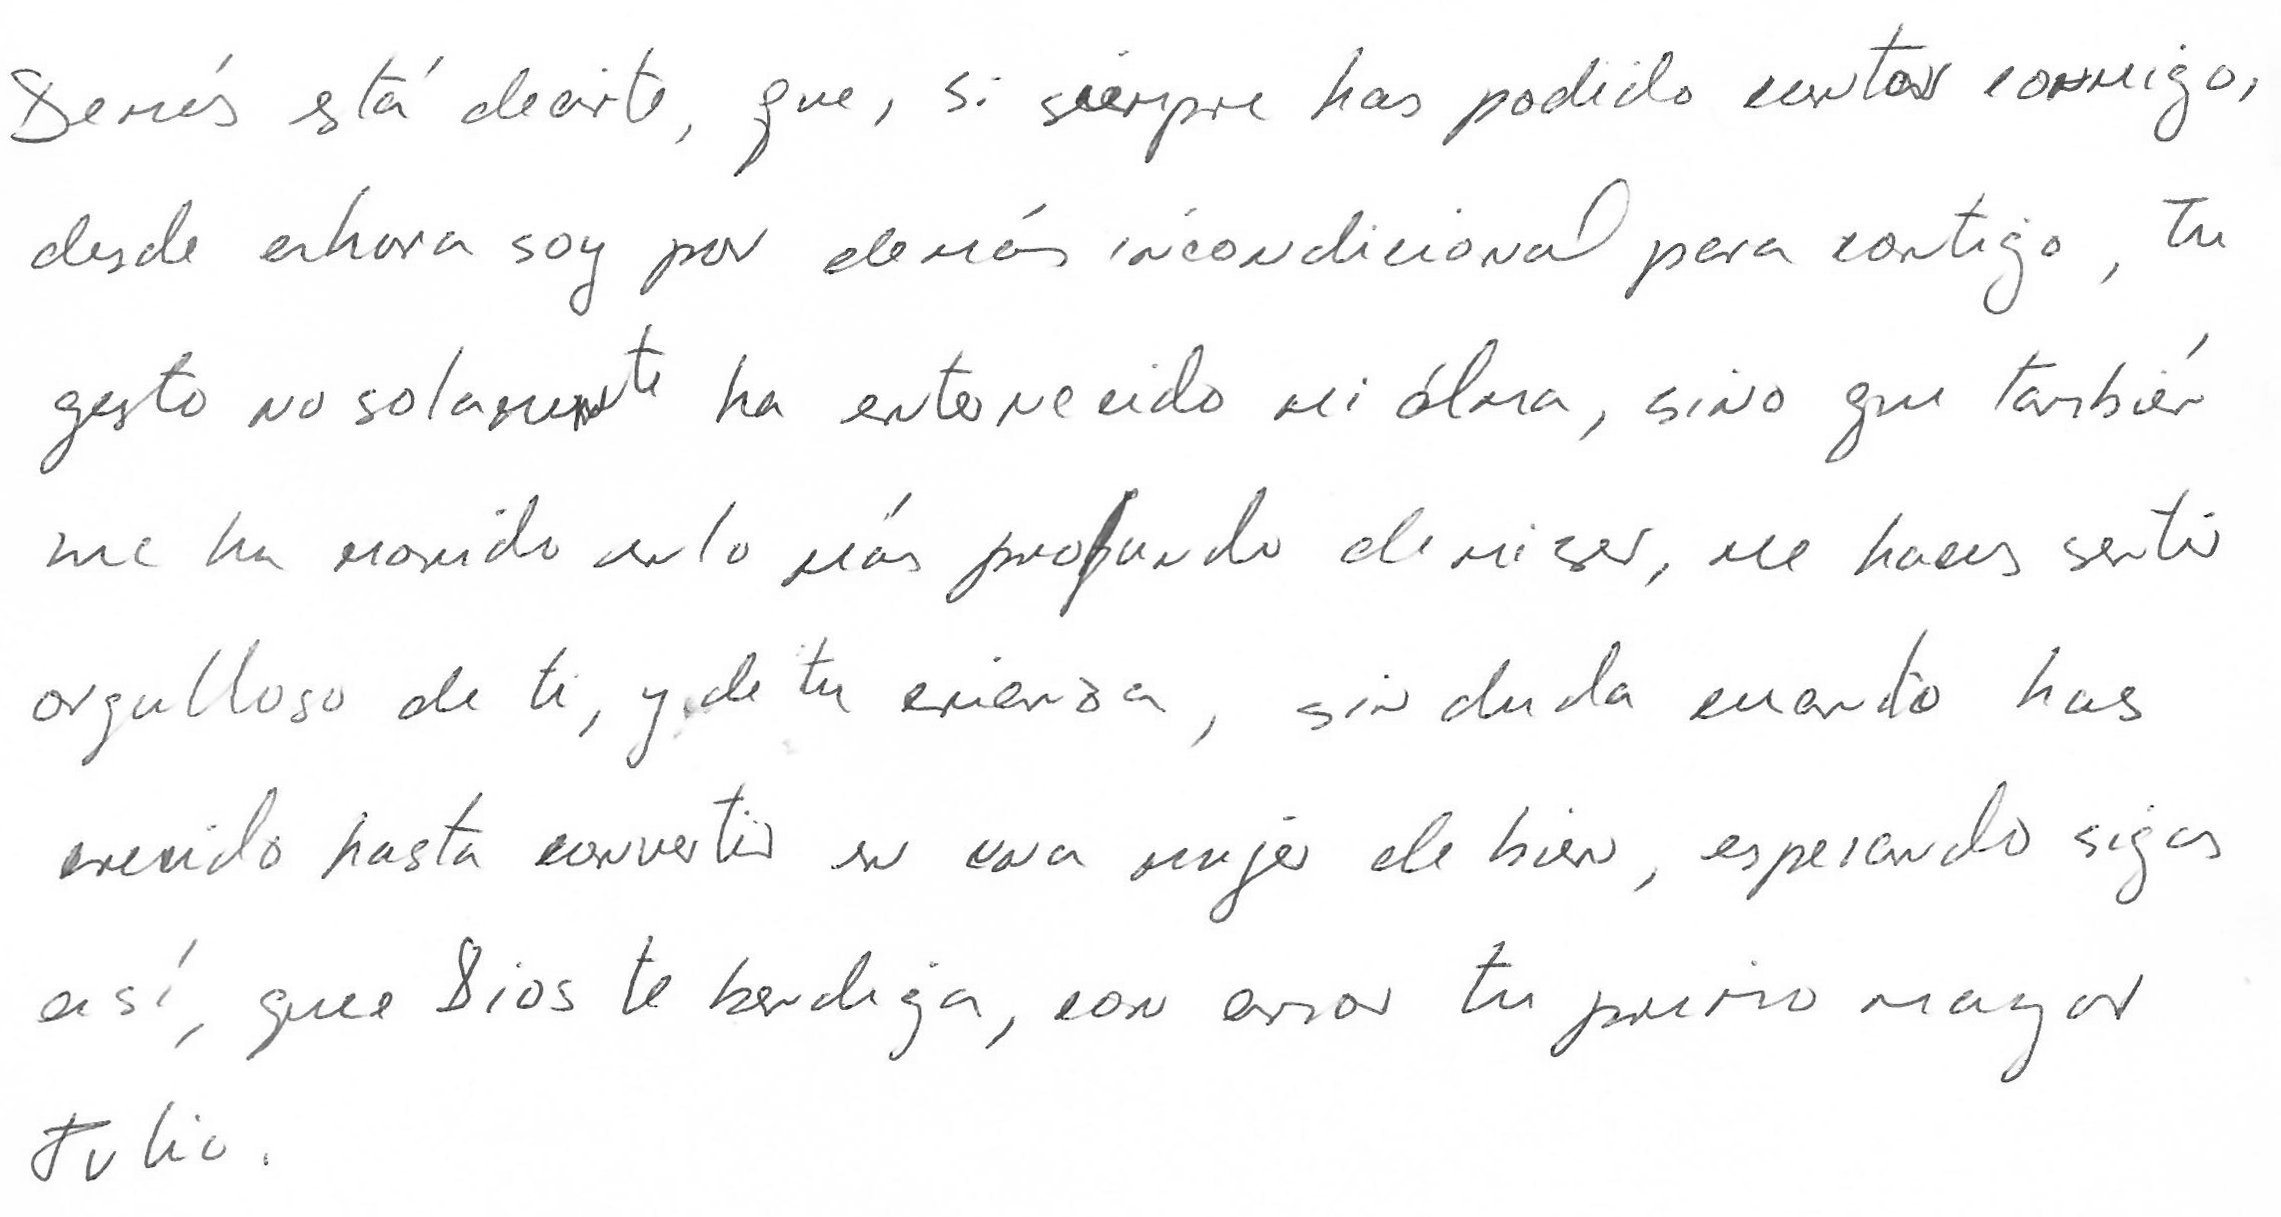 Demás está decirte, que, si siempre has podido contar conmigo,
desde ahora soy por demás incondicional para contigo, tu
gesto no solamente ha enternecido mi álma, sino que también
me ha movido en lo más profundo de mi ser, me haces sentir
orgulloso de ti, y de tu crianza, sin duda cuanto has
crecido hasta convertir en una mujer de bien, esperando sigas
así, que Dios te bendiga, con amor tu primo mayor
Tulio.